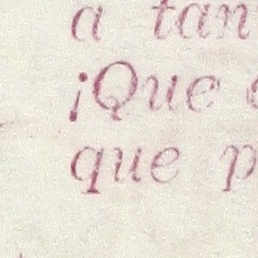 a tan
¡Que
que p